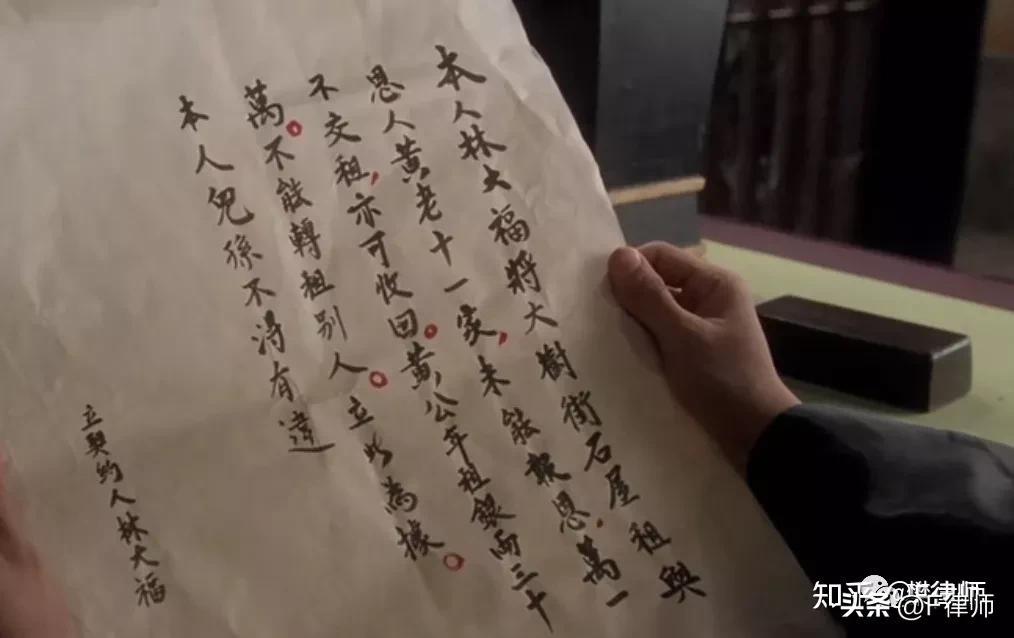 本人林大福將大樹街石屋租與
恩人黃老十一家，未能報恩，萬一
不交租，亦可收回。黃公年租銀兩三十
萬。不能轉租别人。立此為據。
本人兒孫不得有違
立契約人林大福
知乎 @樊律师
头条 @F律师